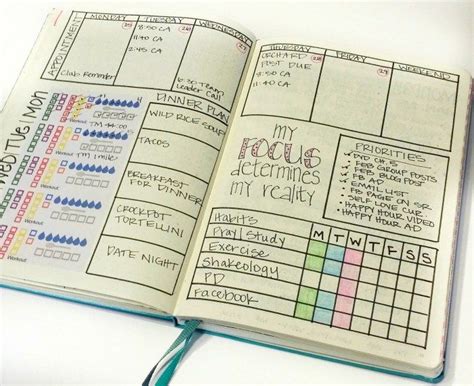 MONDAY
TUESDAY
WEDNESDAY
APPOINTMENT
8:50 CA
10:45 CA
Club Reminder
6:30 Team
Leader Call
DINNER PLAN
WILD RICE SOUP
TACOS
BREAKFAST
FOR DINNER
CROCKPOT
TORTELLINI
DATE NIGHT
Mon
Tue
Wed
Workout
Workout
Workout
THURSDAY
FRIDAY
WEEKEND
ORCHARD
POST DUE
8:50 CA
11:40 CA
my
FOCUS
determines
my reality
PRIORITIES
FEB GROUP POSTS
FEB BLOG POST
FB AD
EMAIL LIST
FB PAGE ON
SELF LOVE CUR.
HAPPY HOUR VIDEO
HAPPY HOUR AD
Habits
M T W T F S S
Pray/Study
Exercise
Shakeology
PD
Facebook